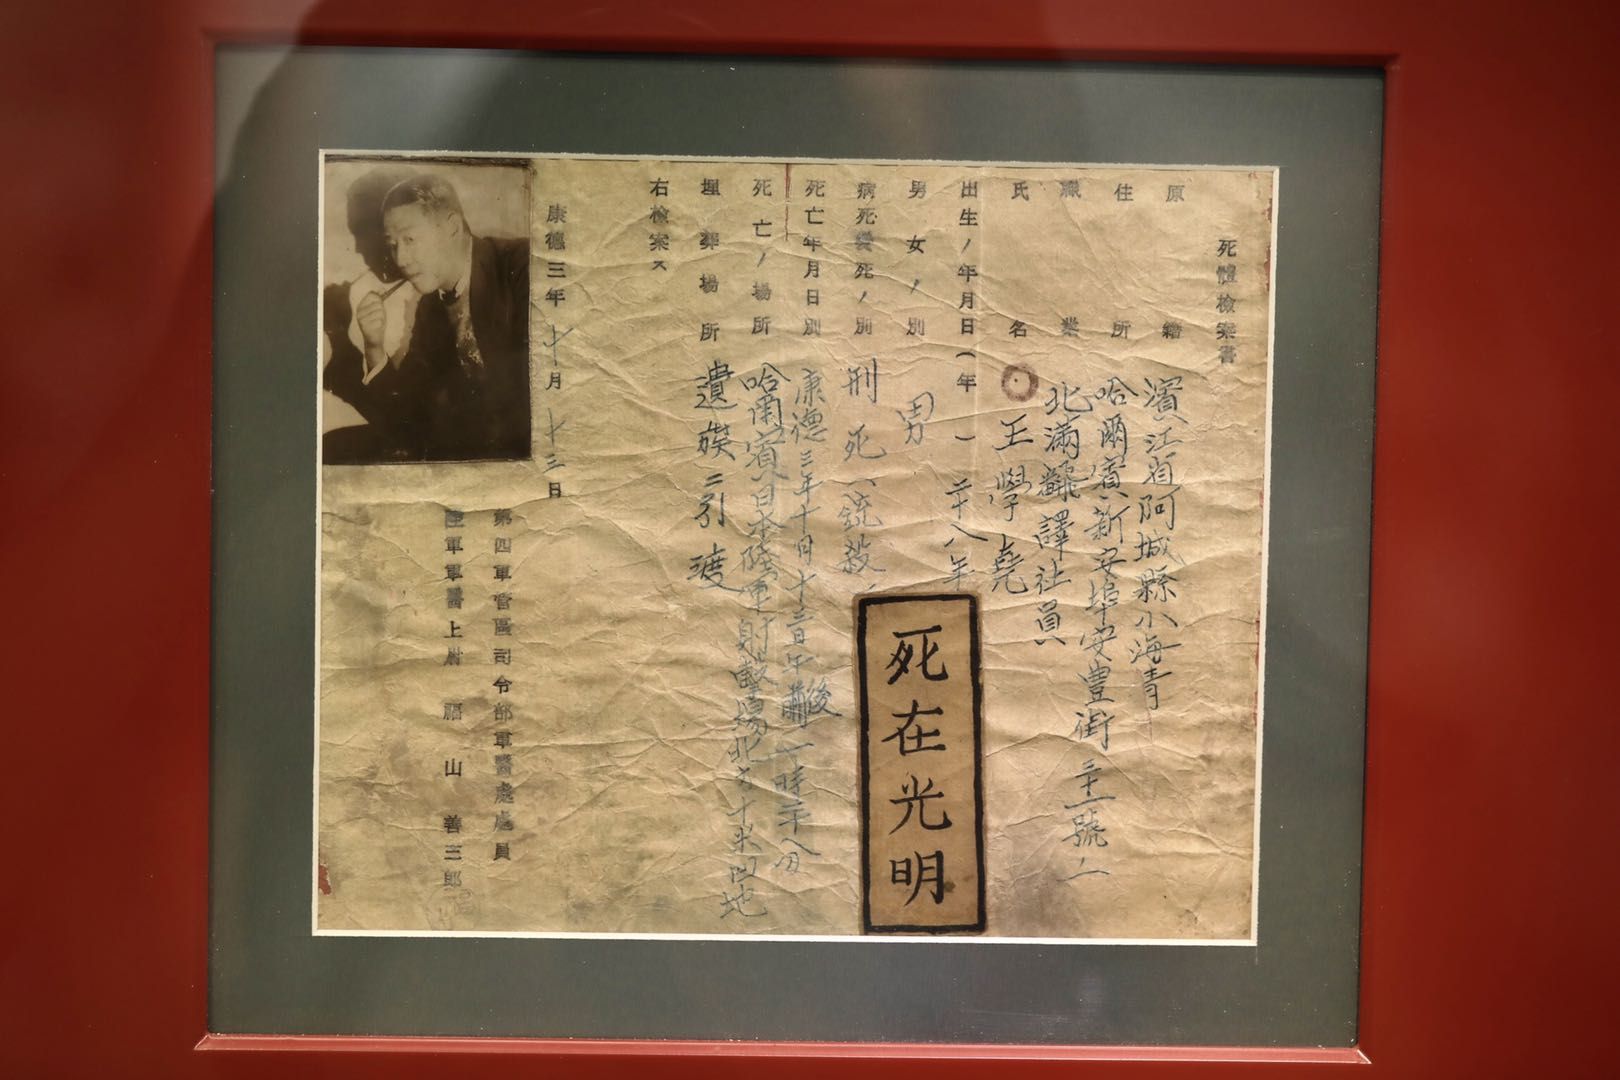 死體檢案書
原籍 濱江省阿城縣小海青
住所 哈爾賓新安埠安豊街三十一號ノ一
職業 北滿飜譯社員
氏名 王學堯
出生ノ年月日(年) 二十八年
男女ノ別 男
病死變死ノ別 刑死(銃殺)
死亡年月日別 康德三年十月十三日午前後一時二十八分
死亡ノ場所 哈爾賓日本陸軍射擊場北方十米凹地
埋葬場所 遺族ニ引渡
右檢案ス
康德三年十月十三日
第四軍管區司令部軍醫處處員
陸軍軍醫上尉 福山善三郎
死在光明